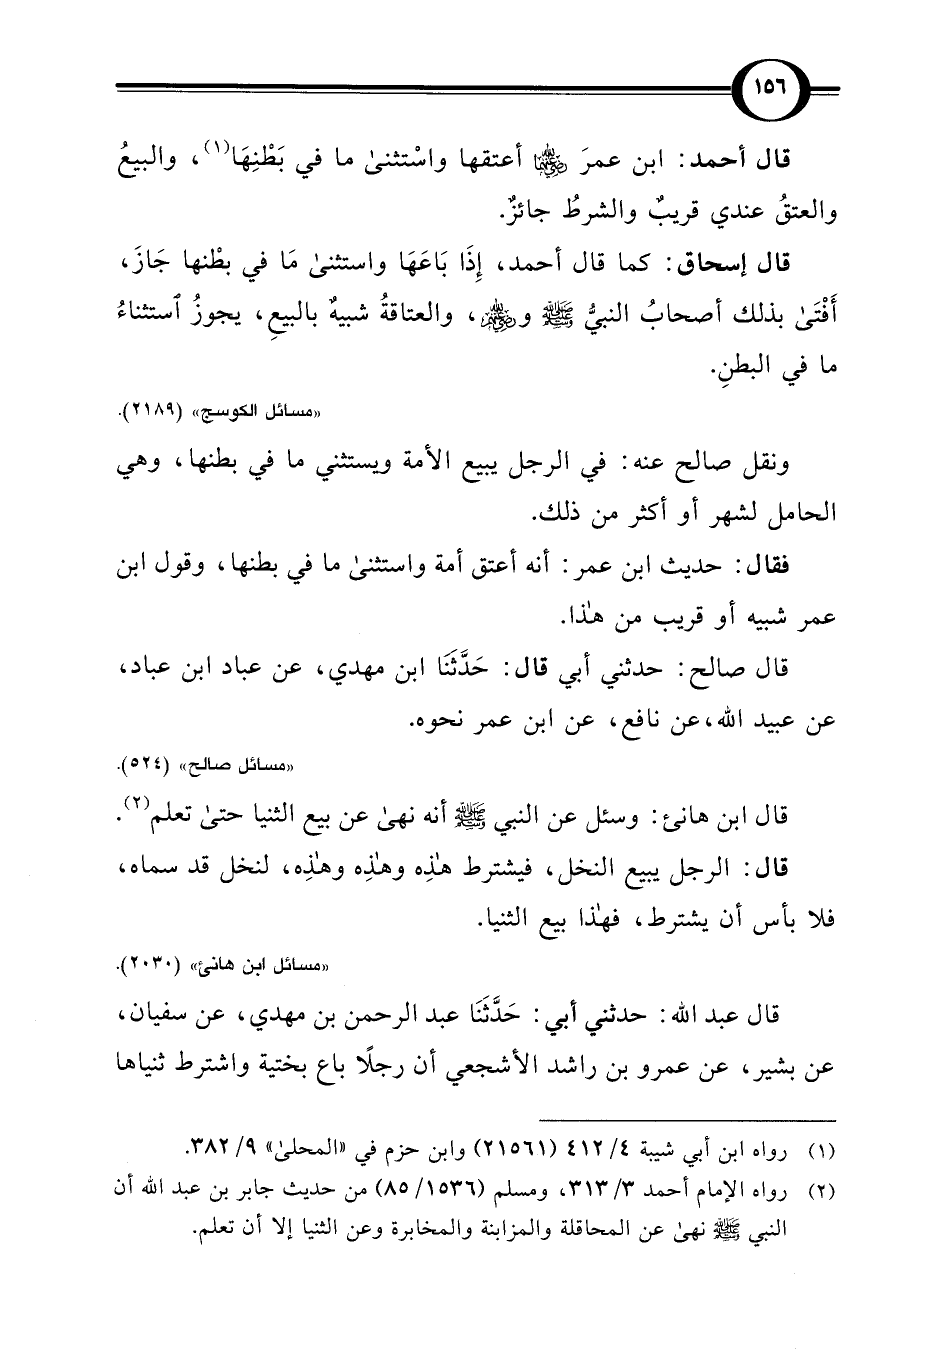 ١٥٦
قال أحمد: ابن عمرَ ﷺ أعتقها واسْتثنىٰ ما في بَطْنِهَا(١)، والبيعُ
والعتقُ عندي قريبٌ والشرطُ جائزٌ.
قال إسحاق: كما قال أحمد، إِذَا بَاعَهَا واستثنىٰ مَا في بطْنها جَازَ،
أَفْتَىٰ بذلك أصحابُ النبيُّ ﷺ و﵃، والعتاقةُ شبيهٌ بالبيعِ، يجوزُ ٱستثناءُ
ما في البطنِ.
«مسائل الكوسج» (٢١٨٩).
ونقل صالح عنه: في الرجل يبيع الأمة ويستثني ما في بطنها، وهي
الحامل لشهر أو أكثر من ذلك.
فقال: حديث ابن عمر: أنه أعتق أمة واستثنىٰ ما في بطنها، وقول ابن
عمر شبيه أو قريب من هذا.
قال صالح: حدثني أبي قال: حَدَّثَنَا ابن مهدي، عن عباد ابن عباد،
عن عبيد الله،عن نافع، عن ابن عمر نحوه.
«مسائل صالح» (٥٢٤).
قال ابن هانئ: وسئل عن النبي ﷺ أنه نهىٰ عن بيع الثنيا حتىٰ تعلم(٢).
قال: الرجل يبيع النخل، فيشترط هٰذِه وهٰذِه وهٰذِه، لنخل قد سماه،
فلا بأس أن يشترط، فهٰذا بيع الثنيا.
«مسائل ابن هانئ» (٢٠٣٠).
قال عبد الله: حدثني أبي: حَدَّثَنَا عبد الرحمن بن مهدي، عن سفيان،
عن بشير، عن عمرو بن راشد الأشجعي أن رجلًا باع بختية واشترط ثنياها
(١) رواه ابن أبي شيبة ٤/ ٤١٢ (٢١٥٦١) وابن حزم في «المحلىٰ» ٩/ ٣٨٢.
(٢) رواه الإمام أحمد ٣/ ٣١٣، ومسلم (١٥٣٦/ ٨٥) من حديث جابر بن عبد الله أن
النبي ﷺ نهىٰ عن المحاقلة والمزابنة والمخابرة وعن الثنيا إلا أن تعلم.